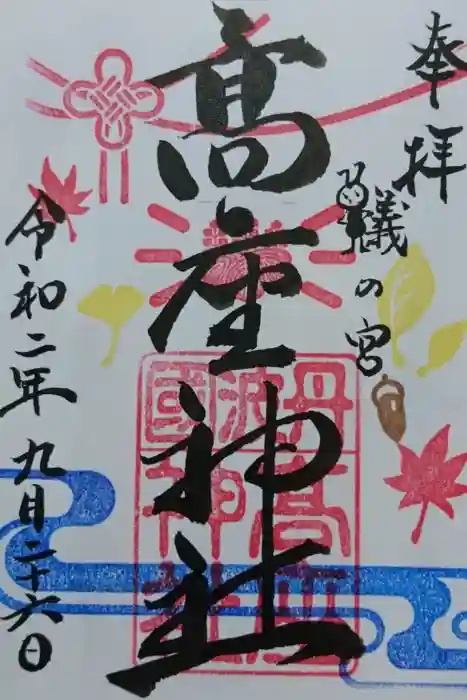 奉拝
蟻の宮
髙座神社
丹波國
高座
神社
令和二年九月二十六日